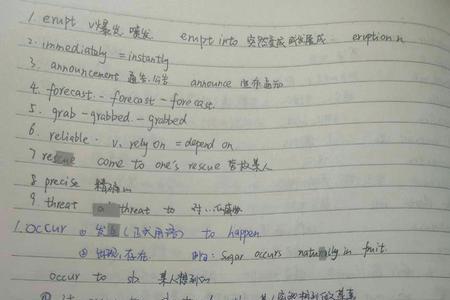 1. erupt v.爆发, 喷发. erupt into 突然变成 eruption.n
2. immediately = instantly
3. announcement 通告.公告 announce 宣布
4. forecast. - forecast - forecast.
5. grab - grabbed - grabbed
6. reliable. v. rely on = depend on
7 rescue come to one's rescue 营救某人
8 precise 精确
9 threat a threat to 对
1. occur ① 发 to happen
② 出现, 存在. Sugar occurs naturally in fruit.
occur to sb 某人想到